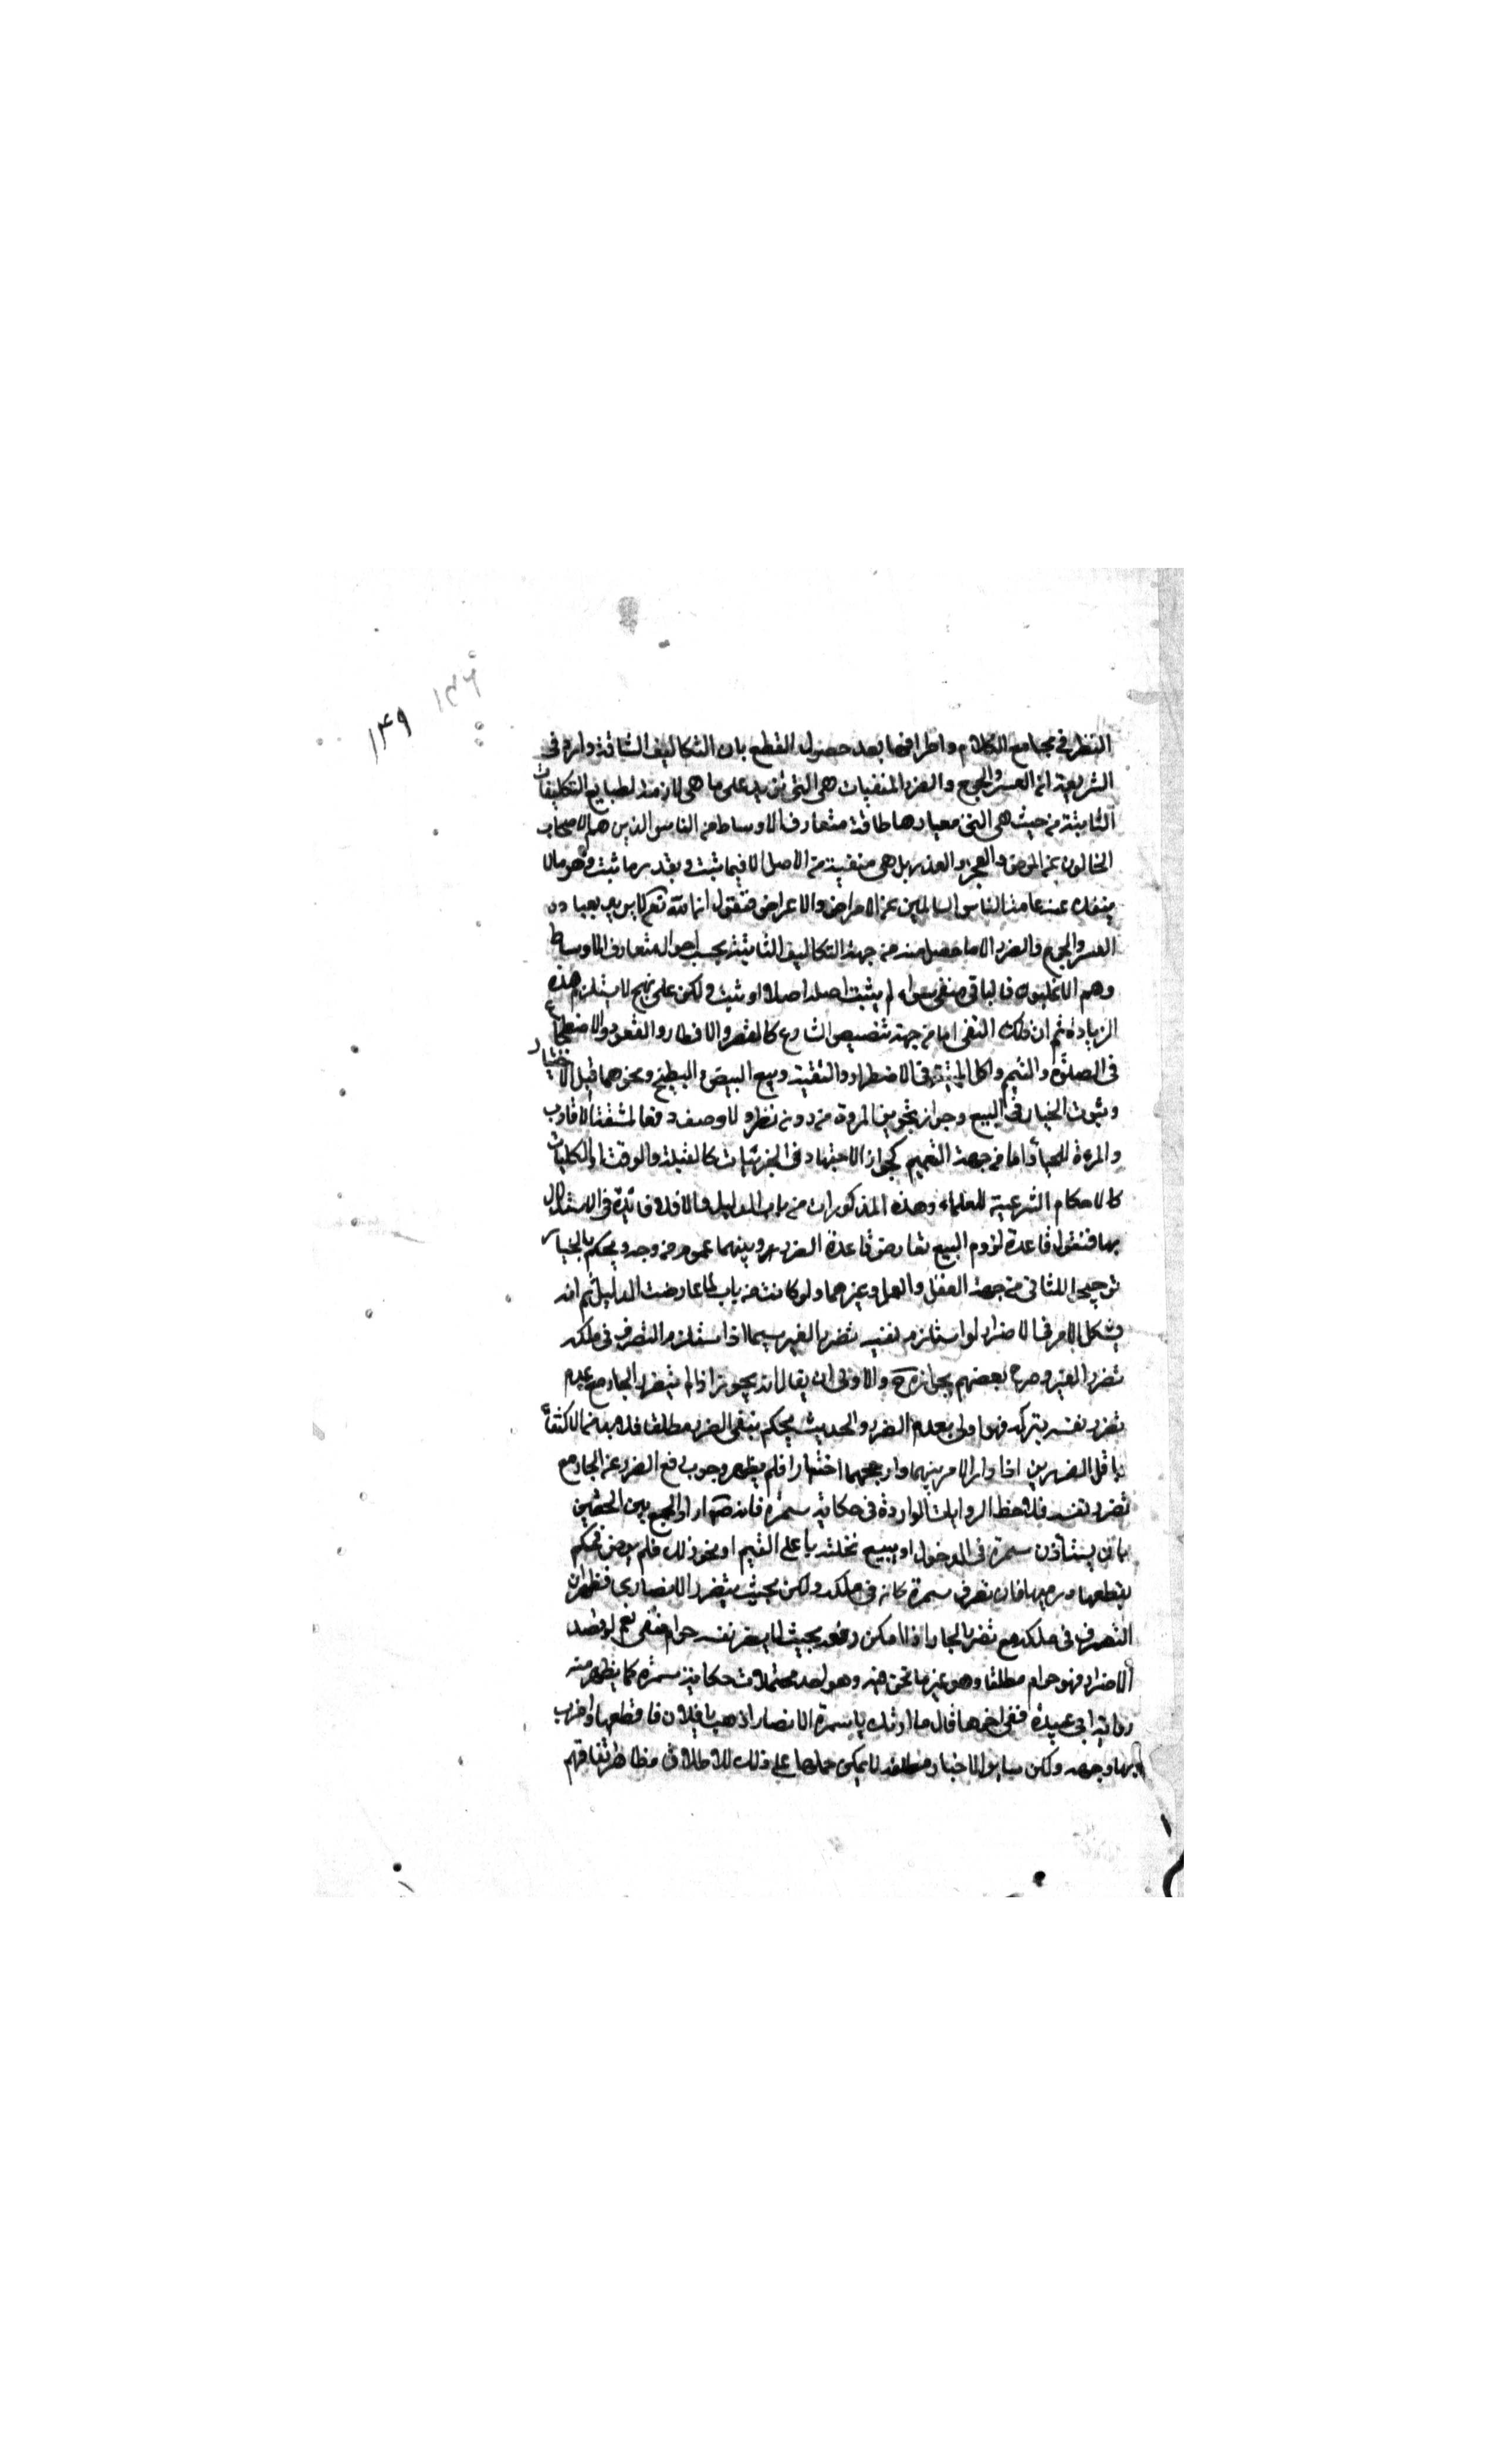 ١٤٩
١٤٦
النظر في مجامع الكلام واطرافها بعد حصول القطع بان التكاليف الشاقة واردة في
الشريعة ان العسر والحرج والضرر المنفيات هى التى تزيد على ما هى لازمة لطبايع التكليفات
الثابتة من حيث هى التى معيارها طاقة متعارف الاوساط من الناس الذين هم الاصحاء
الخالون عن المرض والعجز والعذر بل هى منفية من الاصل الا فيما ثبت وبقدر ما ثبت وهو ما لا
ينفك عنه عامة الناس السالمين عن الامراض والاعراض فنقول ان الله تعالى لا يريد بعباده
العسر والحرج والضرر الا ما حصل منه من جهة التكاليف الثابتة بحسب احوال متعارف الاوساط
وهم الاغلبون فالباقى منفى سواء لم يثبت اصله اصلا او ثبت ولكن على نهج لا يستلزم هذه
الزيادة ثم ان ذلك النفى اما من جهة تنصيص الشارع كالقصر والافطار والقعود والاضطجاع
فى الصلوة والتيمم واكل الميتة فى الاضطرار والتقية وبيع البيض والبطيخ ونحوهما قبل الاختبار
وثبوت الخيار فى البيع وجواز تزويج المروة من دون نظر ولا وصف دفعا لمشقة الاقارب
والمرءة للحياء اما من جهة التعميم كجواز الاجتهاد فى الجزئيات كالقبلة والوقت او الكليات
كالاحكام الشرعية للعلماء وهذه المذكورات من باب الدليل والا فلا فائدة فى الاستدلال
بها فنقول قاعدة لزوم البيع تعارض قاعدة الضرر وبينهما عموم من وجه ويحكم بالخيار
ترجيحا للثانى من جهة العقل والعمل وغيرهما ولو كانت من باب لما عارضت الدليل ثم انه
يشكل الامر فى الاضرار لو استلزم نفيه تضرر الغير سيما اذا استلزم التصرف فى ملكه
تضرر الغير وصرح بعضهم بجوازه ح والاولى ان يقال انه يجوز اذا لم يتضرر الجار مع عدم
تضرر نفسه بتركه فهو اولى بعدم الضرر والحديث يحكم بنفى الضرر مطلقا فلا بد من الاكتفاء
باقل الضررين اذا دار الامر بينهما وارجحهما اختيارا فلم يظهر وجوب دفع الضرر عن الجار مع
تضرر نفسه فلاحظ الروايات الواردة فى حكاية سمرة فانه ص اراد الجمع بين الحقين
بان يستأذن سمرة فى الدخول او يبيع نخلته باعلى القيم او نحو ذلك فلم يرض فحكم
بقطعها ورميها فان تصرف سمرة كان فى ملكه ولكن بحيث يتضرر الانصارى فظهر ان
التصرف فى ملكه مع تضرر الجار اذا امكن دفعه بحيث لا يضر نفسه حرام منفى نعم لو قصد
الاضرار فهو حرام مطلقا وهو غير ما نحن فيه وهو احد محتملات حكاية سمرة كما يظهر من
رواية ابى عبيدة ففى اخرها قال ما اراك يا سمرة الا مضارا اذهب يا فلان فاقطعها واضرب
بها وجهه ولكن سايرالاخبار مطلقة لا يمكن حملها على ذلك للاطلاق